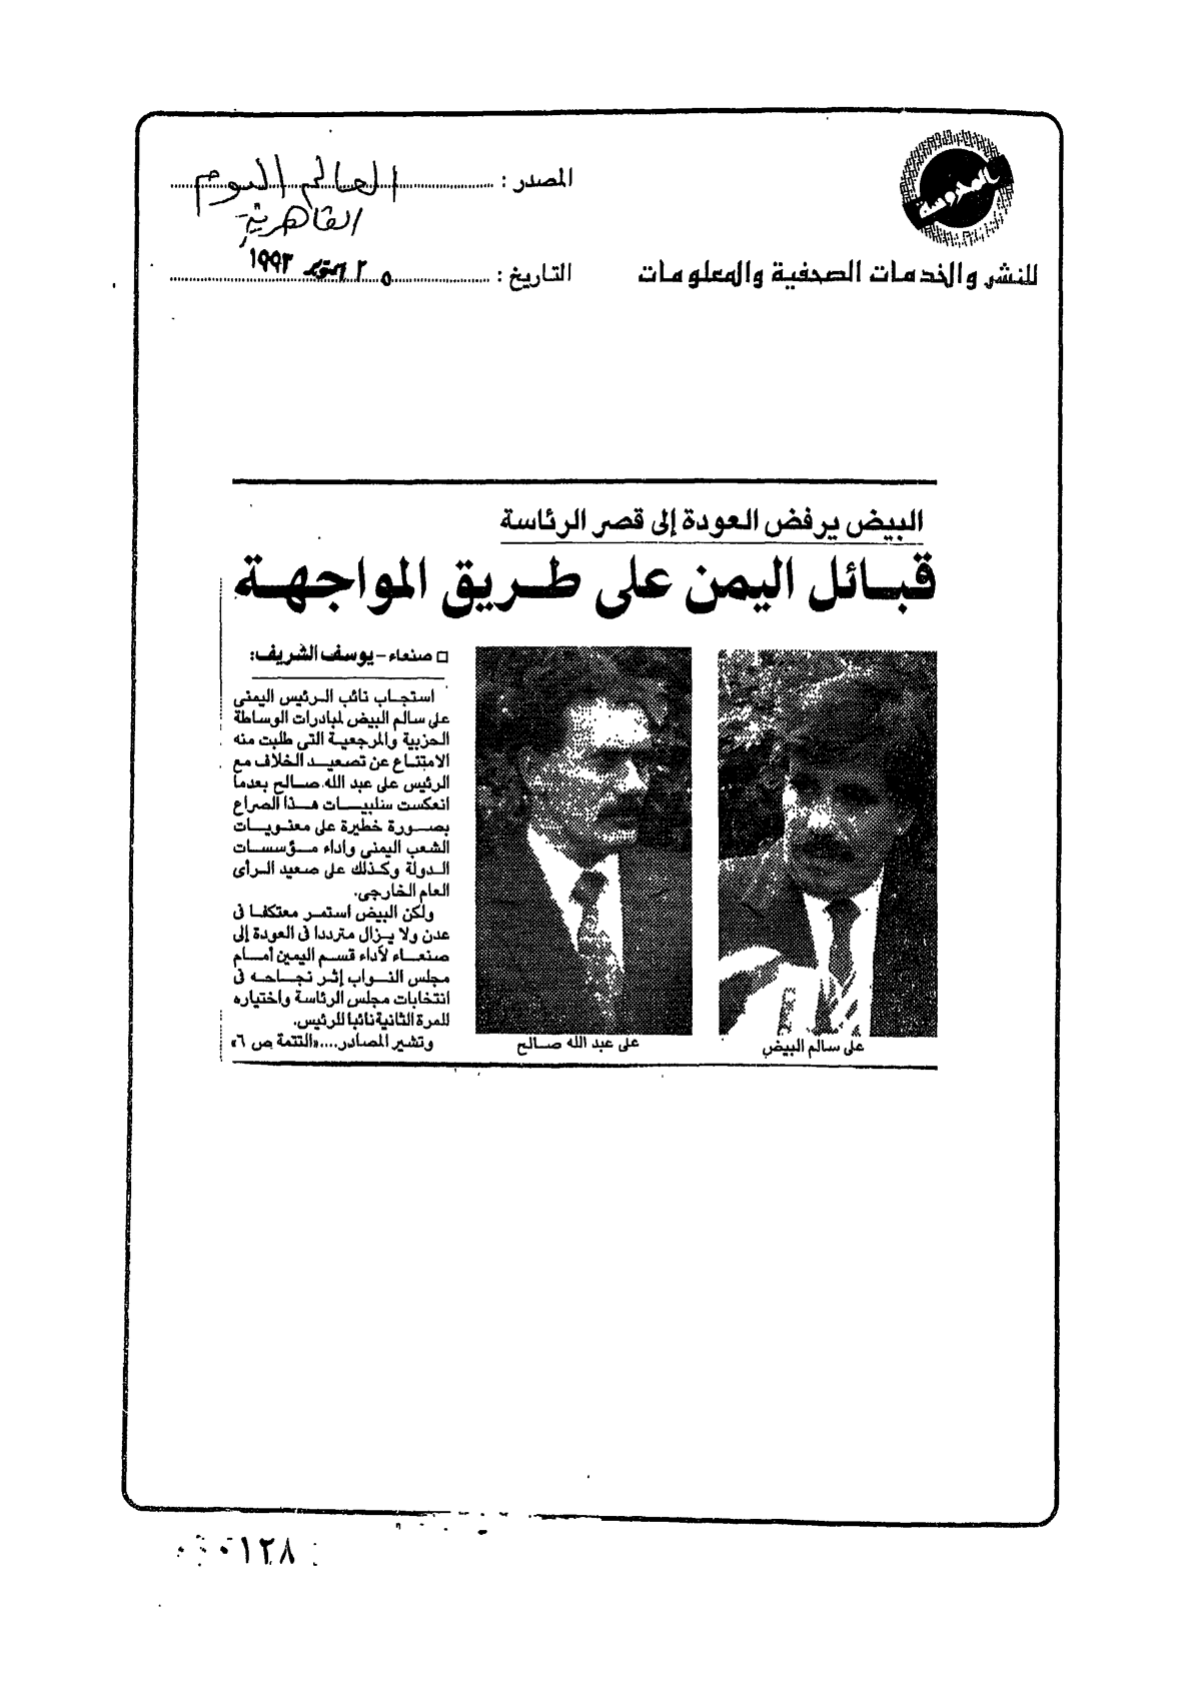 المحروسة
للنشر والخدمات الصحفية والمعلومات
المصدر : العالم اليوم
القاهرية
التاريخ : ٢٥ أكتوبر ١٩٩٣
البيض يرفض العودة إلى قصر الرئاسة
قبائل اليمن على طريق المواجهة
□ صنعاء - يوسف الشريف:
استجاب نائب الرئيس اليمنى
على سالم البيض لمبادرات الوساطة
الحزبية والمرجعية التى طلبت منه
الامتناع عن تصعيد الخلاف مع
الرئيس على عبد الله صالح بعدما
انعكست سلبيات هذا الصراع
بصورة خطيرة على معنويات
الشعب اليمنى وأداء مؤسسات
الدولة وكذلك على صعيد الرأى
العام الخارجى.
ولكن البيض استمر معتكفا فى
عدن ولا يزال مترددا فى العودة إلى
صنعاء لأداء قسم اليمين أمام
مجلس النواب إثر نجاحه فى
انتخابات مجلس الرئاسة واختياره
للمرة الثانية نائبا للرئيس.
وتشير المصادر....«التتمة ص ٦»
على عبد الله صالح
على سالم البيض
٠١٢٨